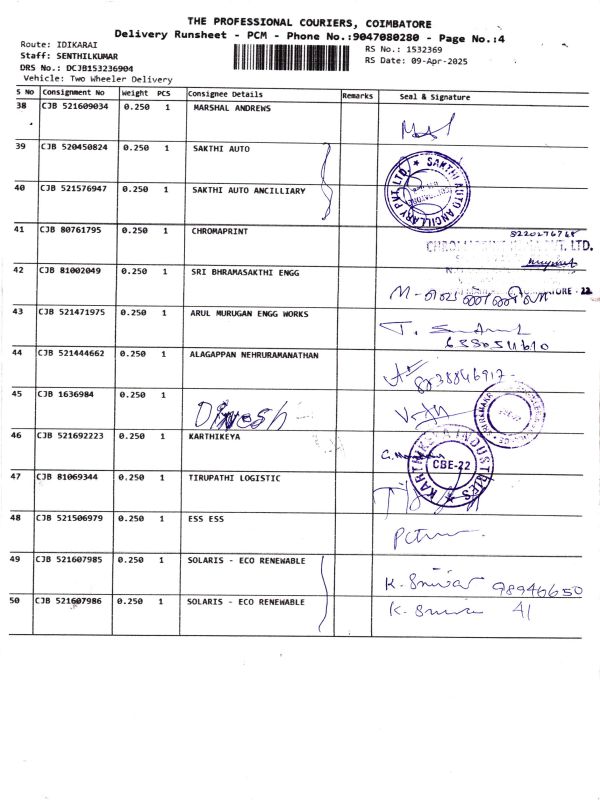 THE PROFESSIONAL COURIERS, COIMBATORE
Delivery Runsheet - PCM - Phone No.:9047080280 - Page No.:4
Route: IDIKARAI
RS No.: 1532369
Staff: SENTHILKUMAR
RS Date: 09-Apr-2025
DRS No.: DCJB153236904
Vehicle: Two Wheeler Delivery
S No Consignment No Weight PCS Consignee Details Remarks Seal & Signature
38 CJB 521609034 0.250 1 MARSHAL ANDREWS
39 CJB 520450824 0.250 1 SAKTHI AUTO
SAKTHI AUTO ANCILLARY PVT LTD.
40 CJB 521576947 0.250 1 SAKTHI AUTO ANCILLIARY
41 CJB 80761795 0.250 1 CHROMAPRINT
PVT. LTD.
42 CJB 81002049 0.250 1 SRI BHRAMASAKTHI ENGG
43 CJB 521471975 0.250 1 ARUL MURUGAN ENGG WORKS
44 CJB 521444662 0.250 1 ALAGAPPAN NEHRURAMANATHAN
45 CJB 1636984 0.250 1 Dinesh
46 CJB 521692223 0.250 1 KARTHIKEYA
KARTHIKEYA INDUSTRIES
CBE-22
47 CJB 81069344 0.250 1 TIRUPATHI LOGISTIC
48 CJB 521506979 0.250 1 ESS ESS
49 CJB 521607985 0.250 1 SOLARIS - ECO RENEWABLE
98946650
50 CJB 521607986 0.250 1 SOLARIS - ECO RENEWABLE
41